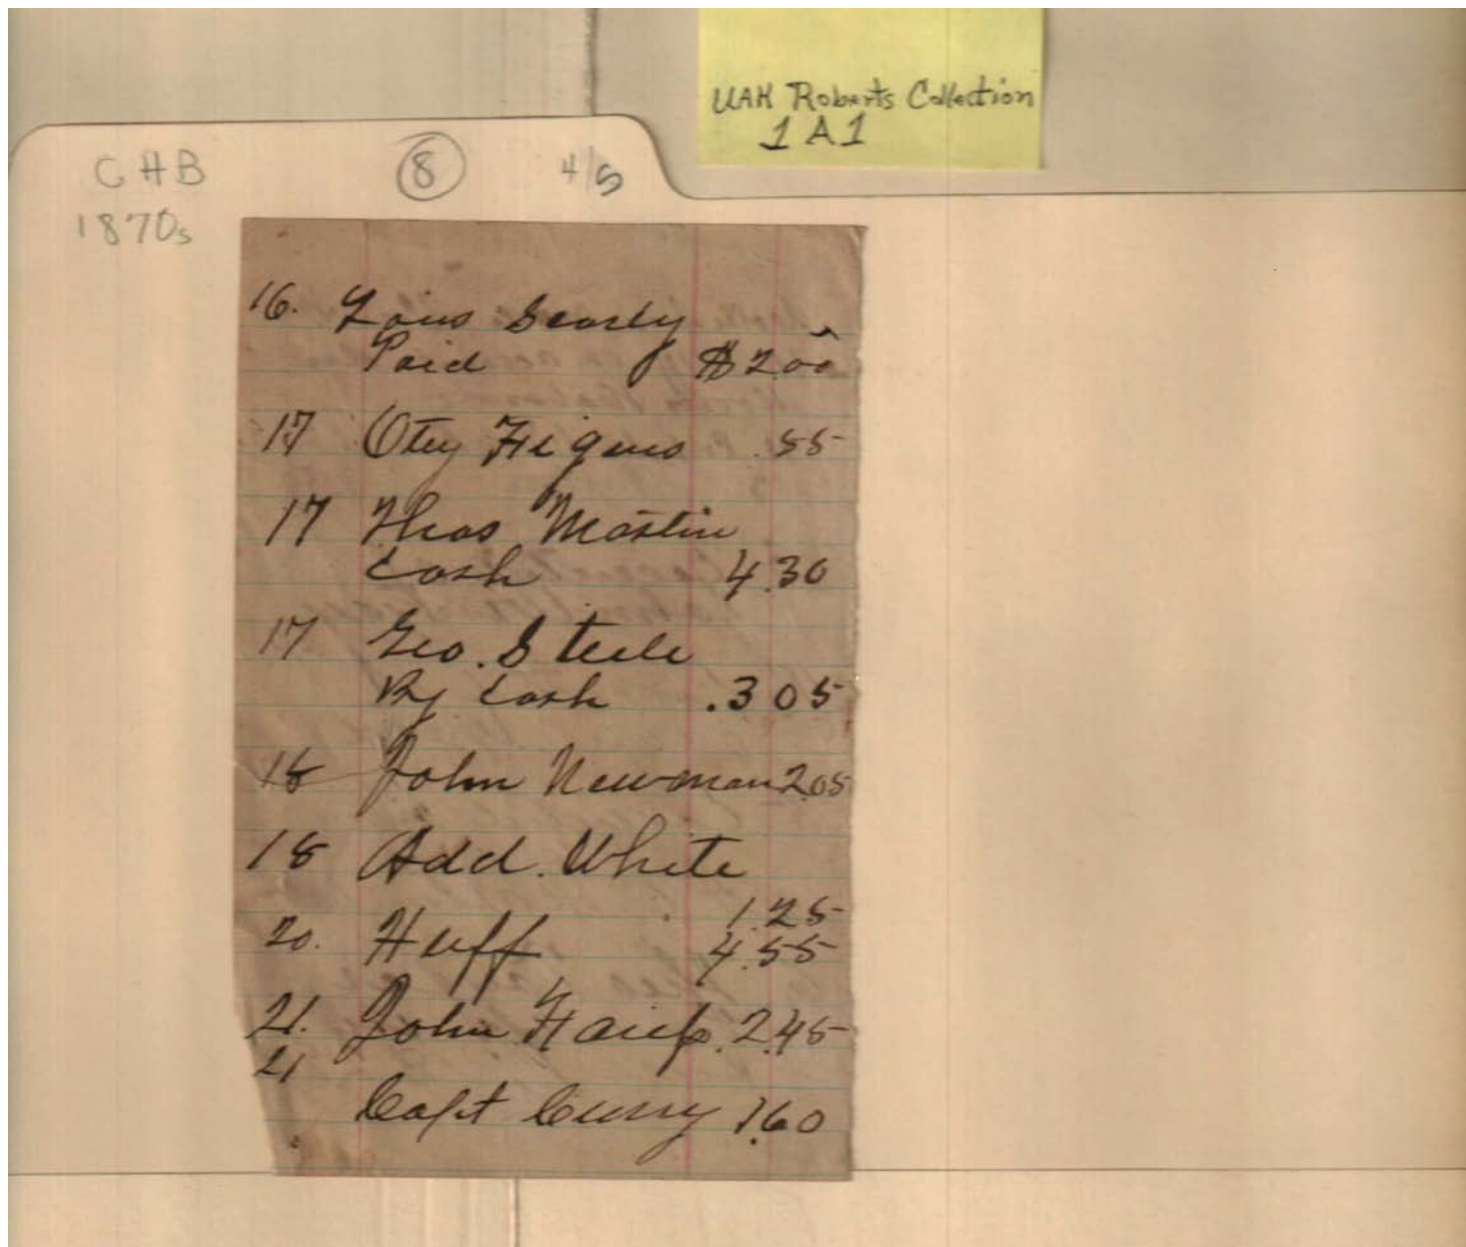 UAH Roberts Collection
1 A 1
CHB 8 4/5
1870s
16. Louis
Paid $2.00
17 Otey Figens .55
17 Thos Mastin
Cash 4.30
17 Geo. Steele
By Cash .3 05
18 John Newman 2.05
18 Add. White
1.25
20. Huff 4.55
21. John 2.45
21
Capt Curry 1.60